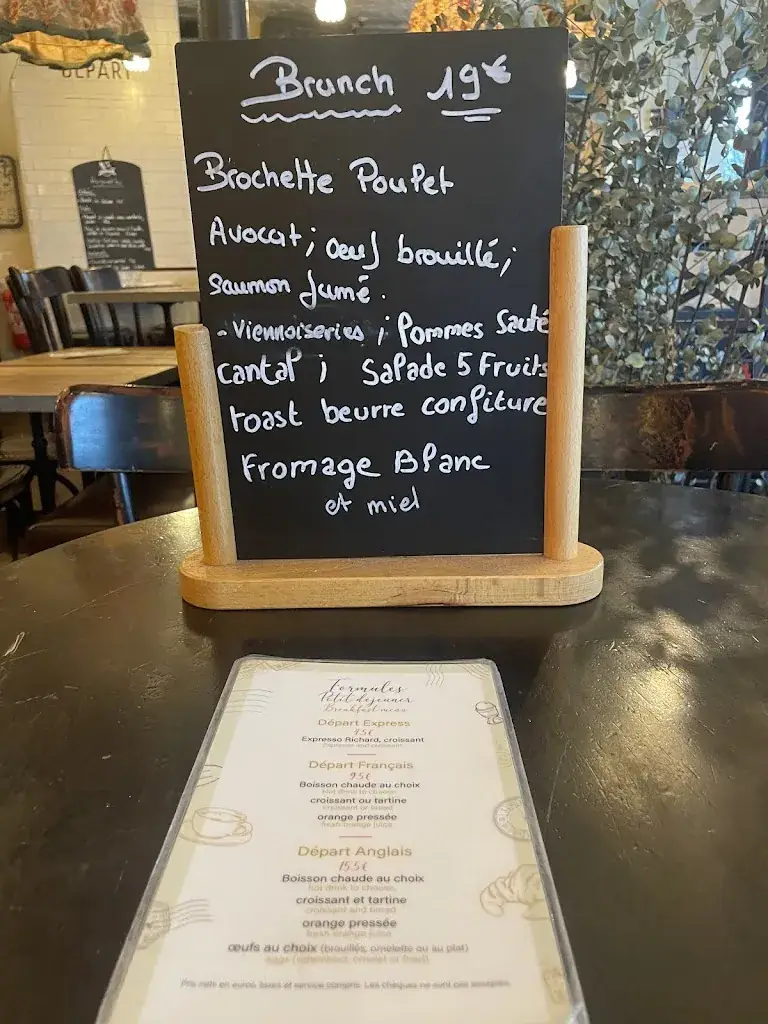 DÉPART
Brunch 19€
Brochette Poulet
Avocat ; œuf brouillé ;
saumon fumé.
- Viennoiseries ; Pommes Sauté
cantal ; Salade 5 Fruits
toast beurre confiture
Fromage Blanc
et miel
Formules
Petit déjeuner
Breakfast menu
Départ Express
Expresso Richard, croissant
Départ Français
9.5€
Boisson chaude au choix
hot drink to choose
croissant ou tartine
croissant or bread
orange pressée
fresh orange juice
Départ Anglais
15.5€
Boisson chaude au choix
hot drink to choose,
croissant et tartine
croissant and bread
orange pressée
fresh orange juice
œufs au choix (brouillés, omelette ou au plat)
eggs (scrambled, omelet or fried)
Prix nets en euros, taxes et service compris. Les chèques ne sont pas acceptés.